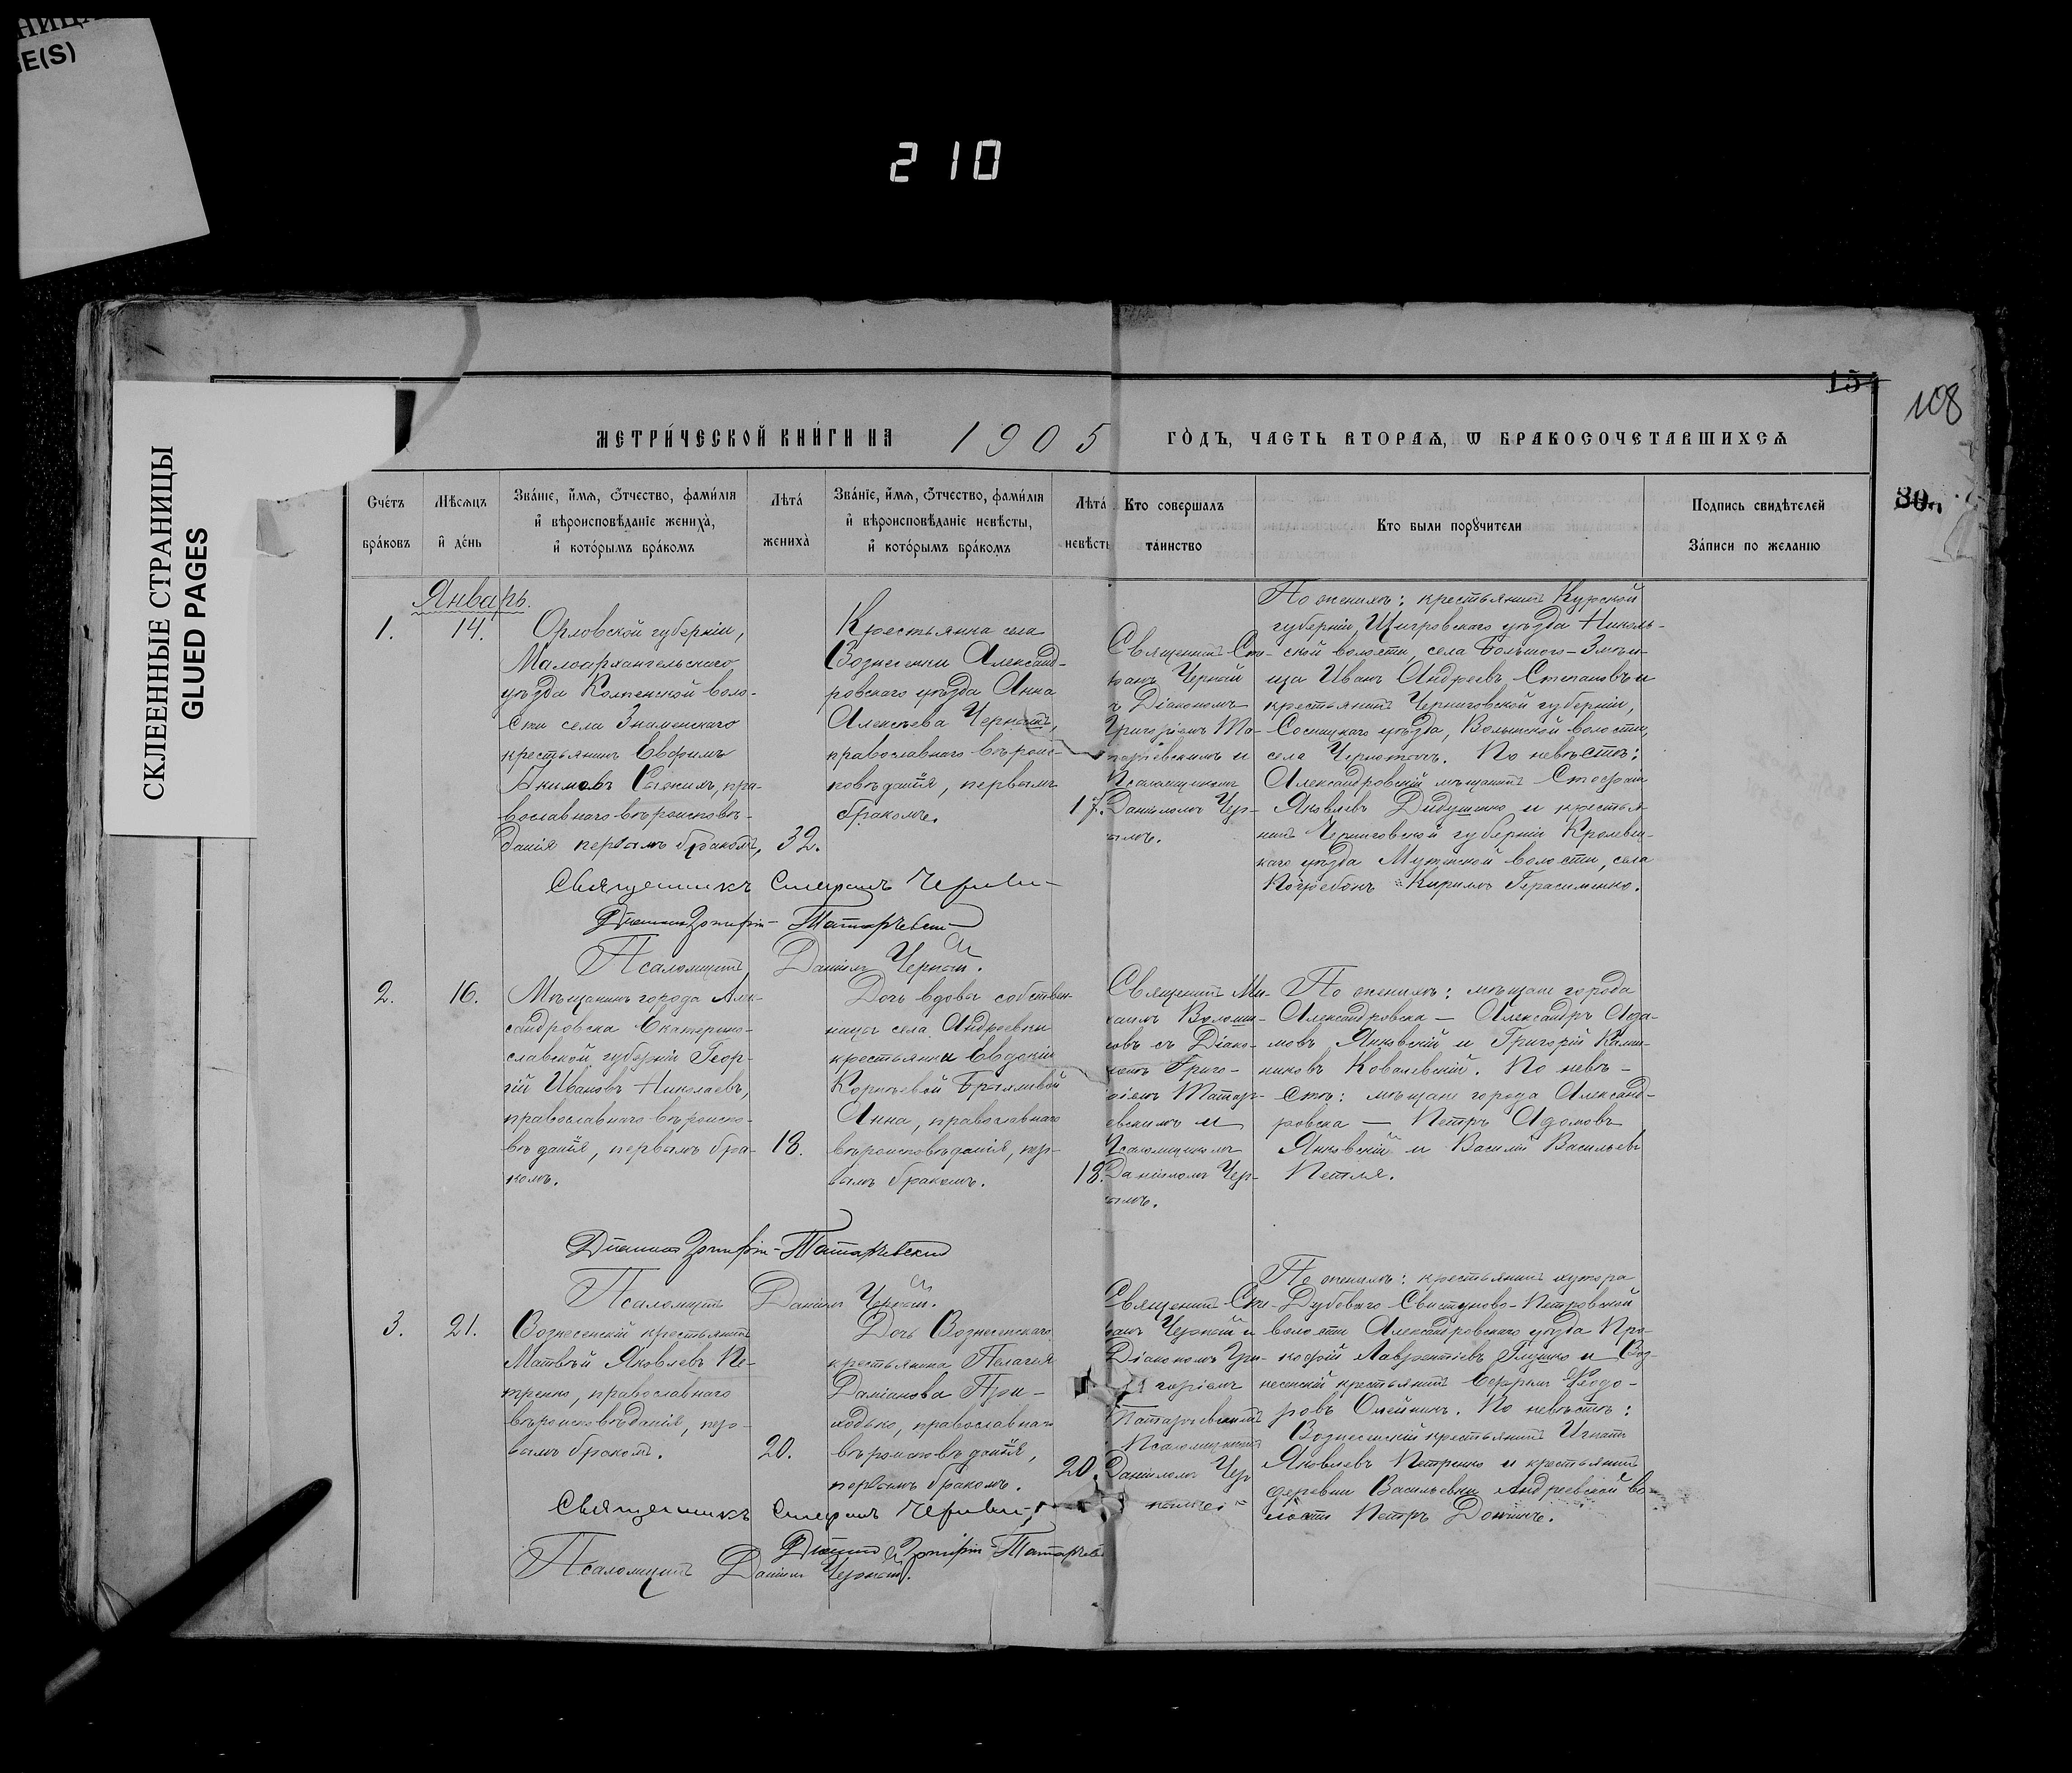 НИЦЫ
GE(S)
210
СКЛЕЕННЫЕ СТРАНИЦЫ
GLUED PAGES
154
108
80.
МЕТРИ́ЧЕСКОЙ КНИ́ГИ НА 1905 ГО́ДЪ, ЧАСТЬ ВТОРАѦ, Ѡ БРАКОСОЧЕТАВШИХСѦ
Сче́тъ бра́ковъ
Мѣ́сѧцъ и҆ де́нь
Зва́нїе, и҆́мѧ, ѻ҆́тчество, фами́лїѧ и҆ вѣроисповѣ́данїе жениха̀, и҆ кото́рымъ бра́комъ
Лѣта̀ жениха̀
Зва́нїе, и҆́мѧ, ѻ҆́тчество, фами́лїѧ и҆ вѣроисповѣ́данїе невѣ́сты, и҆ кото́рымъ бра́комъ
Лѣта̀ невѣ́сты
Кто совершалъ та́инство
Кто были порꙋчители
Подпись свидѣтелей За́писи по желанїю
Январь.
1.
14.
Орловской губерніи,
Малоархангельскаго
уѣзда Колпенской воло-
сти села Знаменскаго
крестьянинъ Евфимъ
Акимовъ пра-
вославнаго вѣроисповѣ-
данія первымъ бракомъ,
32.
Крестьянка села
Вознесенки Александ-
ровскаго уѣзда Анна
Алексѣева Черный,
православнаго вѣроис-
повѣданія, первымъ
бракомъ.
17.
Священникъ Сте-
фанъ Черный
съ Діакономъ
Григоріемъ Та-
таріевскимъ и
Псаломщикомъ
Даніиломъ Чер-
нымъ.
По женихѣ: крестьянинъ Курской
губерніи Щигровскаго уѣзда Николь-
ской волости, села Большого-Змѣи-
нца Иванъ Андреевъ Степановъ и
крестьянинъ Черниговской губерніи,
Сосницкаго уѣзда, Волынской волости,
села По невѣстѣ:
Александровскій мѣщанинъ Стефанъ
Яковлевъ Дидушенко и крестья-
нинъ Черниговской губерніи Кролевец-
каго уѣзда волости, села
Кириллъ Герасименко.
Священникъ Стефанъ Черный
Діаконъ Григорій Татарчевскій
Псаломщикъ Даніилъ Черный.
2.
16.
Мѣщанинъ города Алек-
сандровска Екатерино-
славской губерніи Геор-
гій Ивановъ Николаевъ,
православнаго вѣроиспо-
вѣданія, первымъ бра-
комъ.
18.
Дочь вдовы собствен-
ницы села Андреевки
крестьянки Евдокіи
Корнѣевой
Анна, православнаго
вѣроисповѣданія, пер-
вымъ бракомъ.
18.
Священникъ Ми-
хаилъ Волоши-
новъ съ Діако-
номъ Григо-
ріемъ Татарч-
евскимъ и
Псаломщикомъ
Даніиломъ Чер-
нымъ.
По женихѣ: мѣщане города
Александровска — Александръ Ада-
мовъ Янковскій и Григорій Калли-
никовъ Ковалевскій. По невѣ-
стѣ: мѣщане города Александ-
ровска — Петръ Адамовъ
Янковскій и Василій Васильевъ
Петля.
Діаконъ Григорій Татарчевскій
Псаломщикъ Даніилъ Черный.
3.
21.
Вознесенскій крестьянинъ
Матвѣй Яковлевъ Пе-
тренко, православнаго
вѣроисповѣданія, пер-
вымъ бракомъ.
20.
Дочь Вознесенскаго
крестьянина Пелагея
Даміанова При-
ходько, православнаго
вѣроисповѣданія,
первымъ бракомъ.
20.
Священникъ Сте-
фанъ Черный и
Діакономъ Гри-
горіемъ
Татарчевскимъ
Псаломщикомъ
Даніиломъ Чер-
нымъ.
По женихѣ: крестьянинъ хутора
Дубоваго Свистуново-Петровской
волости Александровскаго уѣзда Про-
кофій Лаврентіевъ Глушко и Воз-
несенскій крестьянинъ Ѳеодо-
ровъ Олейникъ. По невѣстѣ:
Вознесенскій крестьянинъ Игнатъ
Яковлевъ Петренко и крестьянинъ
деревни Васильевки Андреевской во-
лости Петръ
Священникъ Стефанъ Черный
Діаконъ Григорій Татарчевскій
Псаломщикъ Даніилъ Черный.